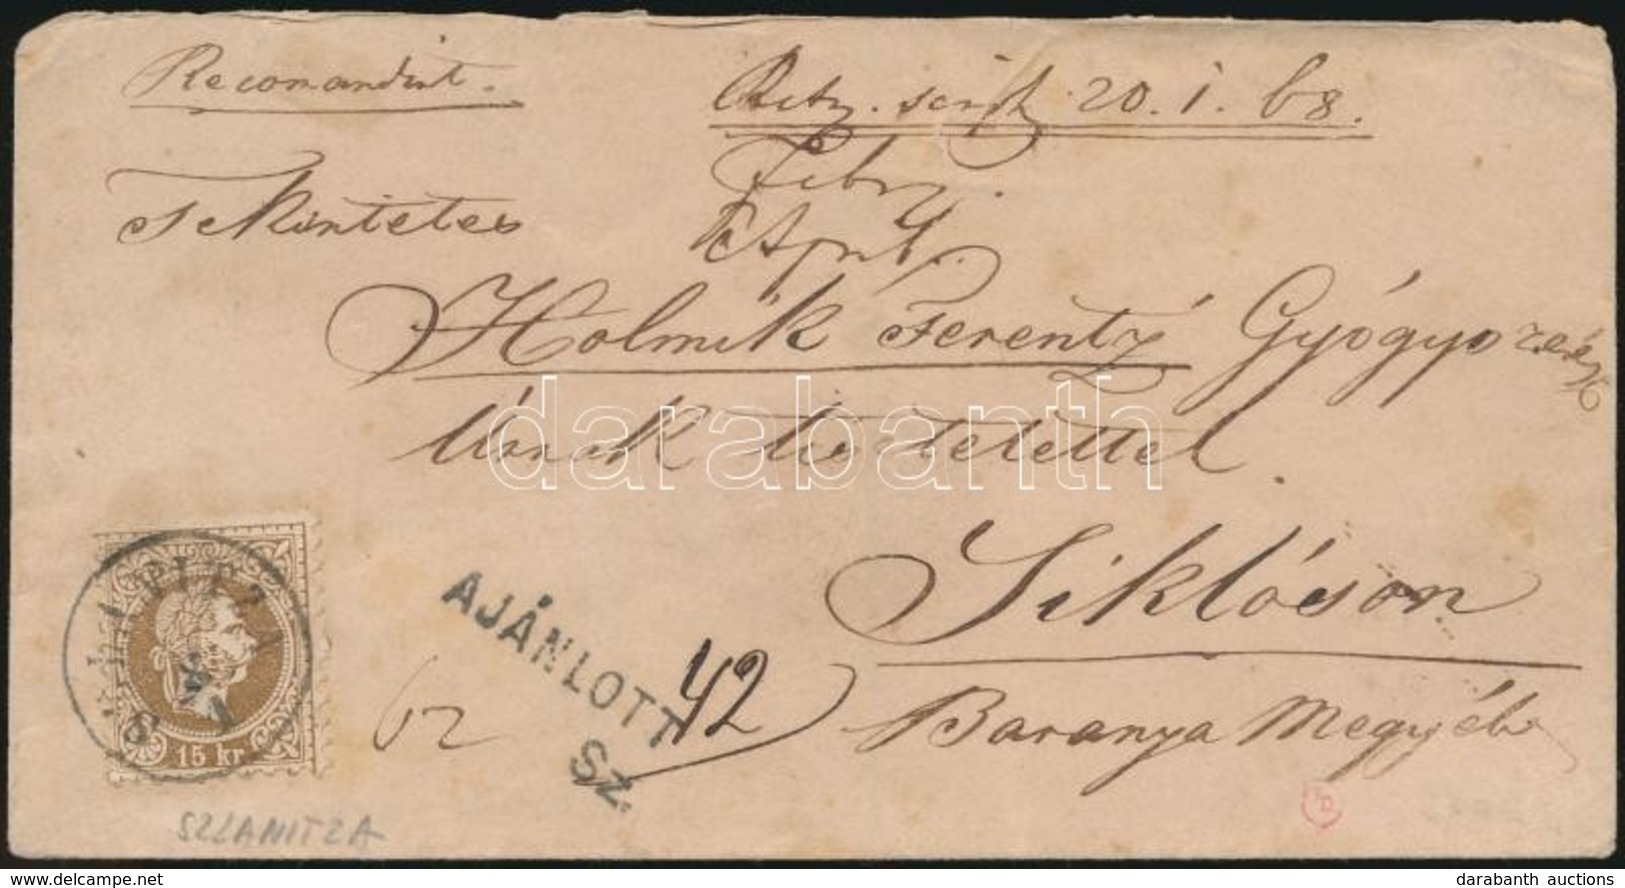 Recomandirt.
20. 1. 68.
Febr.
April.
Tekintetes
Holmik Ferentz Gyógyszerész
Úrnak tisztelettel.
Siklóson
Baranya Megyébe
AJÁNLOTT
42
SZ.
62
15 kr
SZLANITZA
darabanth
www.delcampe.net
darabanth auctions